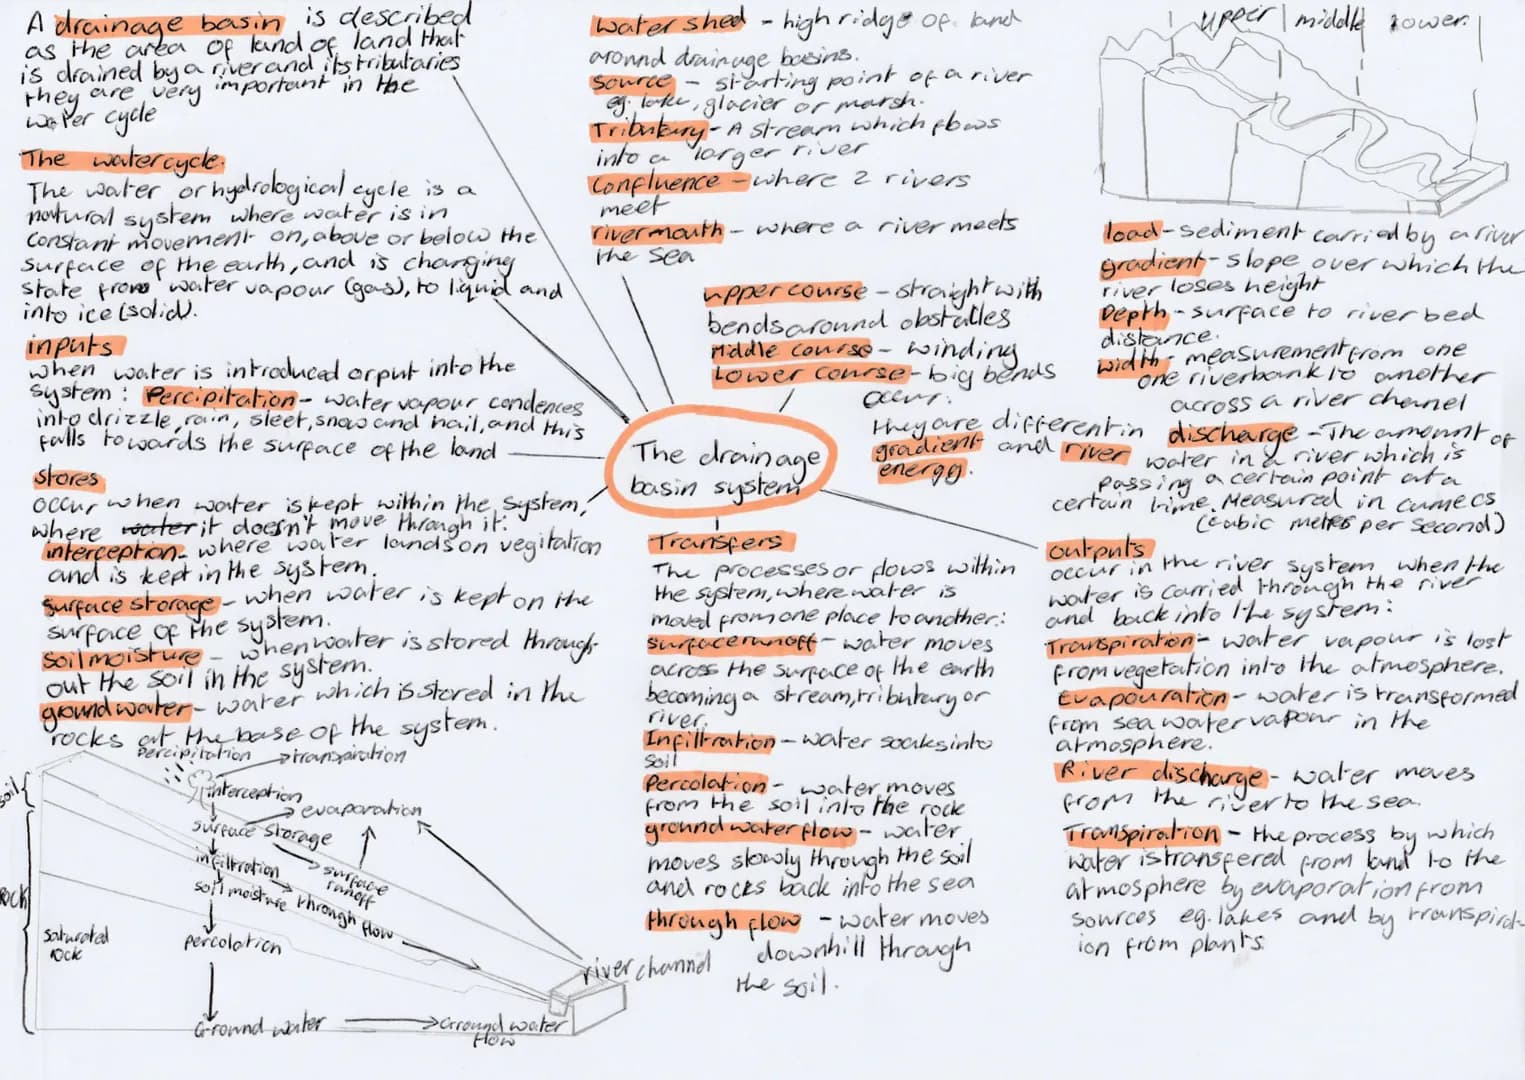 A drainage basin is described
as the area of land of land that
is drained by a river and its tributaries
they are very important in the
water cycle
The water cycle.
The water or hydrological cycle is a
natural system where water is in
constant movement on, above or below the
surface of the earth, and is changing
state from water vapour (gas), to liquid and
into ice (solid).
inputs
when water is introduced or put into the
system: Percipitation - water vapour condences
into drizzle, rain, sleet, snow and hail, and this
falls towards the surface of the land
Stores
occur when water is kept within the system,
where water it doesn't move through it:
interception - where water lands on vegitation
and is kept in the system.
surface storage - when water is kept on the
surface of the system.
soil moisture - when water is stored through-
out the soil in the system.
ground water - water which is stored in the
rocks at the base of the system.
percipitation
transpiration
interception
evaporation
surface storage
infiltration
surface
runoff
soil moisture
through flow
percolation
soil
rock
saturated
rock
river channel
Ground water
Ground water
flow
water shed - high ridge of land
around drainage basins.
source - starting point of a river
eg. lake, glacier or marsh.
Tributary - A stream which flows
into a larger river
Confluence - where 2 rivers
meet
river mouth - where a river meets
the sea
upper course - straight with
bends around obstacles
Middle course - winding
Lower course - big bends
occur.
they are different in
gradient and river
energy.
The drainage
basin system
Transfers
The processes or flows within
the system, where water is
moved from one place to another:
surface runoff - water moves
across the surface of the earth
becoming a stream, tributary or
river.
Infiltration - water soaks into
soil
Percolation - water moves
from the soil into the rock
ground water flow - water
moves slowly through the soil
and rocks back into the sea
through flow - water moves
downhill through
the soil.
upper middle lower
load - sediment carried by a river
gradient - slope over which the
river loses height
Depth - surface to river bed
distance.
width - measurement from one
one riverbank to another
across a river channel
discharge - The amount of
water in a river which is
passing a certain point at a
certain time. Measured in cumecs
(cubic meters per second)
outputs
occur in the river system when the
water is carried through the river
and back into the system:
Transpiration - water vapour is lost
from vegetation into the atmosphere.
Evapouration - water is transformed
from sea water vapour in the
atmosphere.
River discharge - water moves
from the river to the sea.
Transpiration - the process by which
water is transfered from land to the
atmosphere by evaporation from
sources eg. lakes and by transpirat-
ion from plants.